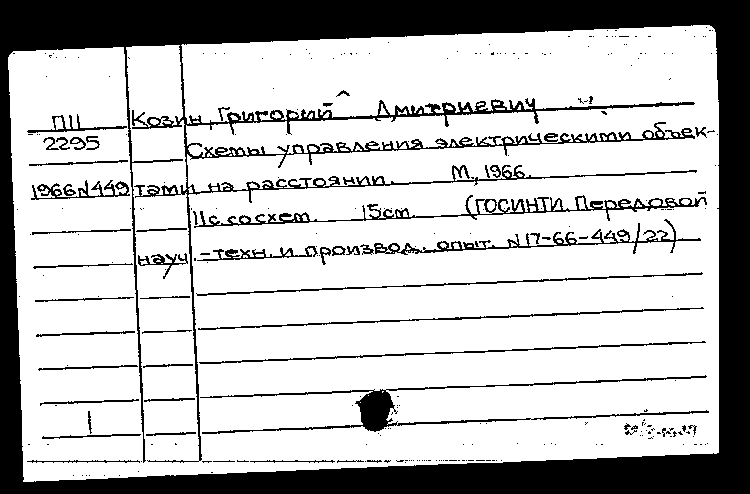 П11 Козин, Григорий Дмитриевич
2295 Схемы управления электрическими объек-
1966 N449 тами на расстоянии. М., 1966.
11с. со схем. 15см. (ГОСИНТИ. Передовой
науч.-техн. и производ. опыт. N 17-66-449/22)
1